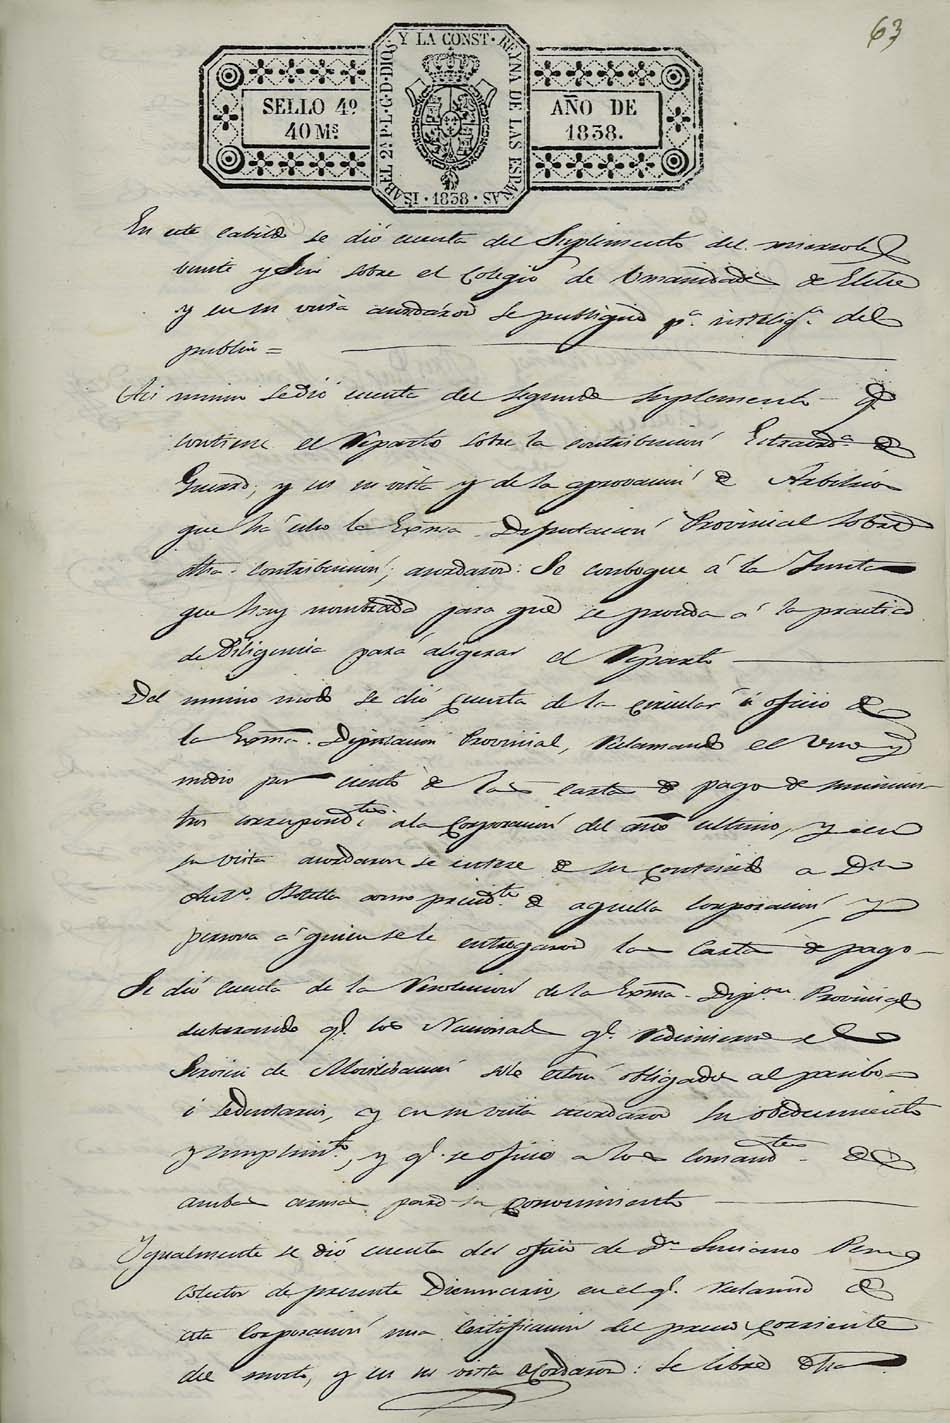 63
SELLO 4º
40 Mˢ
ISABEL 2ª P.L.G.D.DIOS Y LA CONST. REYNA DE LAS ESPAÑAS
1838
AÑO DE
1838.
En este cabildo se dió cuenta del Suplimento del miercoles
veinte y Seis sobre el Colegio de Umanidades de Elche
y en su vista acordaron se publique pª. inteligª. del
publico =
Asi mismo se dió cuenta del segundo suplemento q.
contiene el Reparto sobre la contribucion Estraordª. de
Guerra, y en su vista y de la aprovacion de Arbitrios
que há echo la Exma. Diputacion Provincial sobre
dha. contribucion; acordaron: Se conboque á la Junta
que hay nombrada para que se proceda á la practica
de Diligencias para aligerar el Reparto
Del mismo modo se dió cuenta de la circular ú oficio de
la Exma. Diputacion Provincial, reclamando el uno y
medio por ciento de las cartas de pago de suminis-
tros correspondᵗᵉˢ. a la Corporacion del año ultimo, y en
su vista acordaron se entere de su contenido a Dn
Antº. Botella como presidᵗᵉ. de aquella Corporacion, y
persona á quien se le entregaron las Cartas de pago
Se dió cuenta de la Resolucion de la Exma. Dipᵒⁿ. Provincial
declarando q. los Nacionales q. redimieron el
Servicio de Movilisacion solo estan obligados al pasibo
ó sedentario, y en su vista acordaron su obedecimiento
y cumplimᵗᵒ, y q. se oficie a los Comandᵗᵉˢ. de
ambas armas para su conocimiento
Ygualmente se dió cuenta del oficio de Dn Luciano Perez
Colector del presente Diesmario, en el q. reclama de
esta Corporacion una Certificacion del precio corriente
del mosto, y en su vista acordaron: Se libre dha